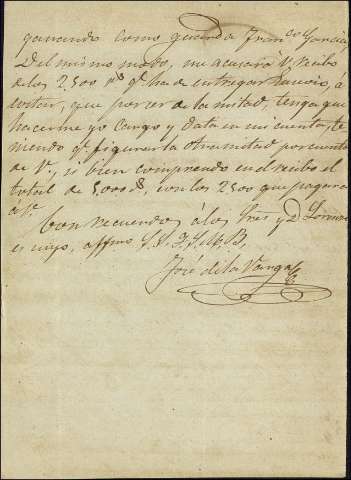 ganando como queda Fran.co Garcia
Del mismo modo, me acusará V, recibo
de los 2.500 p.s q.e ha de entregar Lauoir, á
evitar, que por ser de la mitad, tenga que
hacerme yo cargo y data en mi cuenta, te
niendo q.e figurar la otra mitad por cuenta
de V, si bien comprendo en el recibo el
total de 5.000 $, con los 2.500 que pagará
á V.
Con recuerdos á los Sres y D.
es suyo, affmo S. S. Q. S. M. B,
José de la Vargas